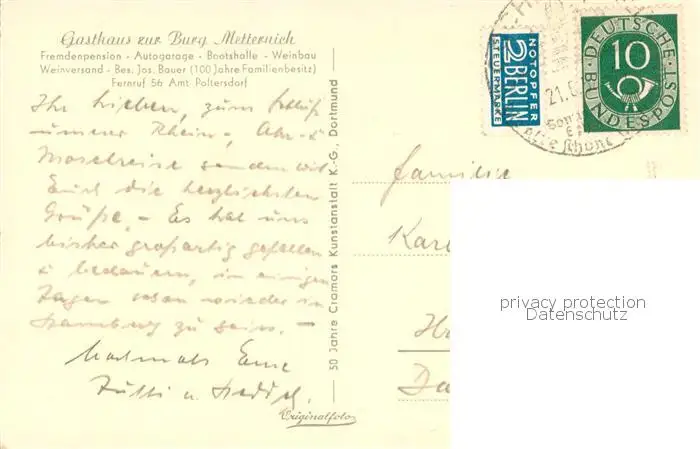 Gasthaus zur Burg Metternich
Fremdenpension - Autogarage - Bootshalle - Weinbau
Weinversand - Bes. Jos. Bauer (100 Jahre Familienbesitz)
Fernruf 56 Amt Poltersdorf
Ihr Lieben, zum Schluß
unserer Rhein-, Ahr- u.
Moselreise senden wir
Euch die herzlichsten
Grüße. - Es hat uns
bisher großartig gefallen
u. bedauern, in einigen
Tagen schon wieder in
Hamburg zu sein. -
Nochmals Eure
u.
Originalfoto
50 Jahre Cramers Kunstanstalt K.-G., Dortmund
NOTOPFER
2 BERLIN
STEUERMARKE
DEUTSCHE
BUNDESPOST
10
21.
Familie
Karl
privacy protection
Datenschutz